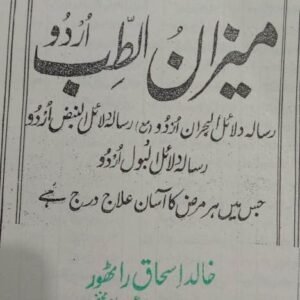 میزان الطِّب اُردُو
رسالہ دلائل البحران اُردو (مع) رسالہ دلائل النبض اُردو
رسالہ دلائل البول اُردو
جس میں ہر مرض کا آسان علاج درج ہے
خالد اسحاق راٹھور